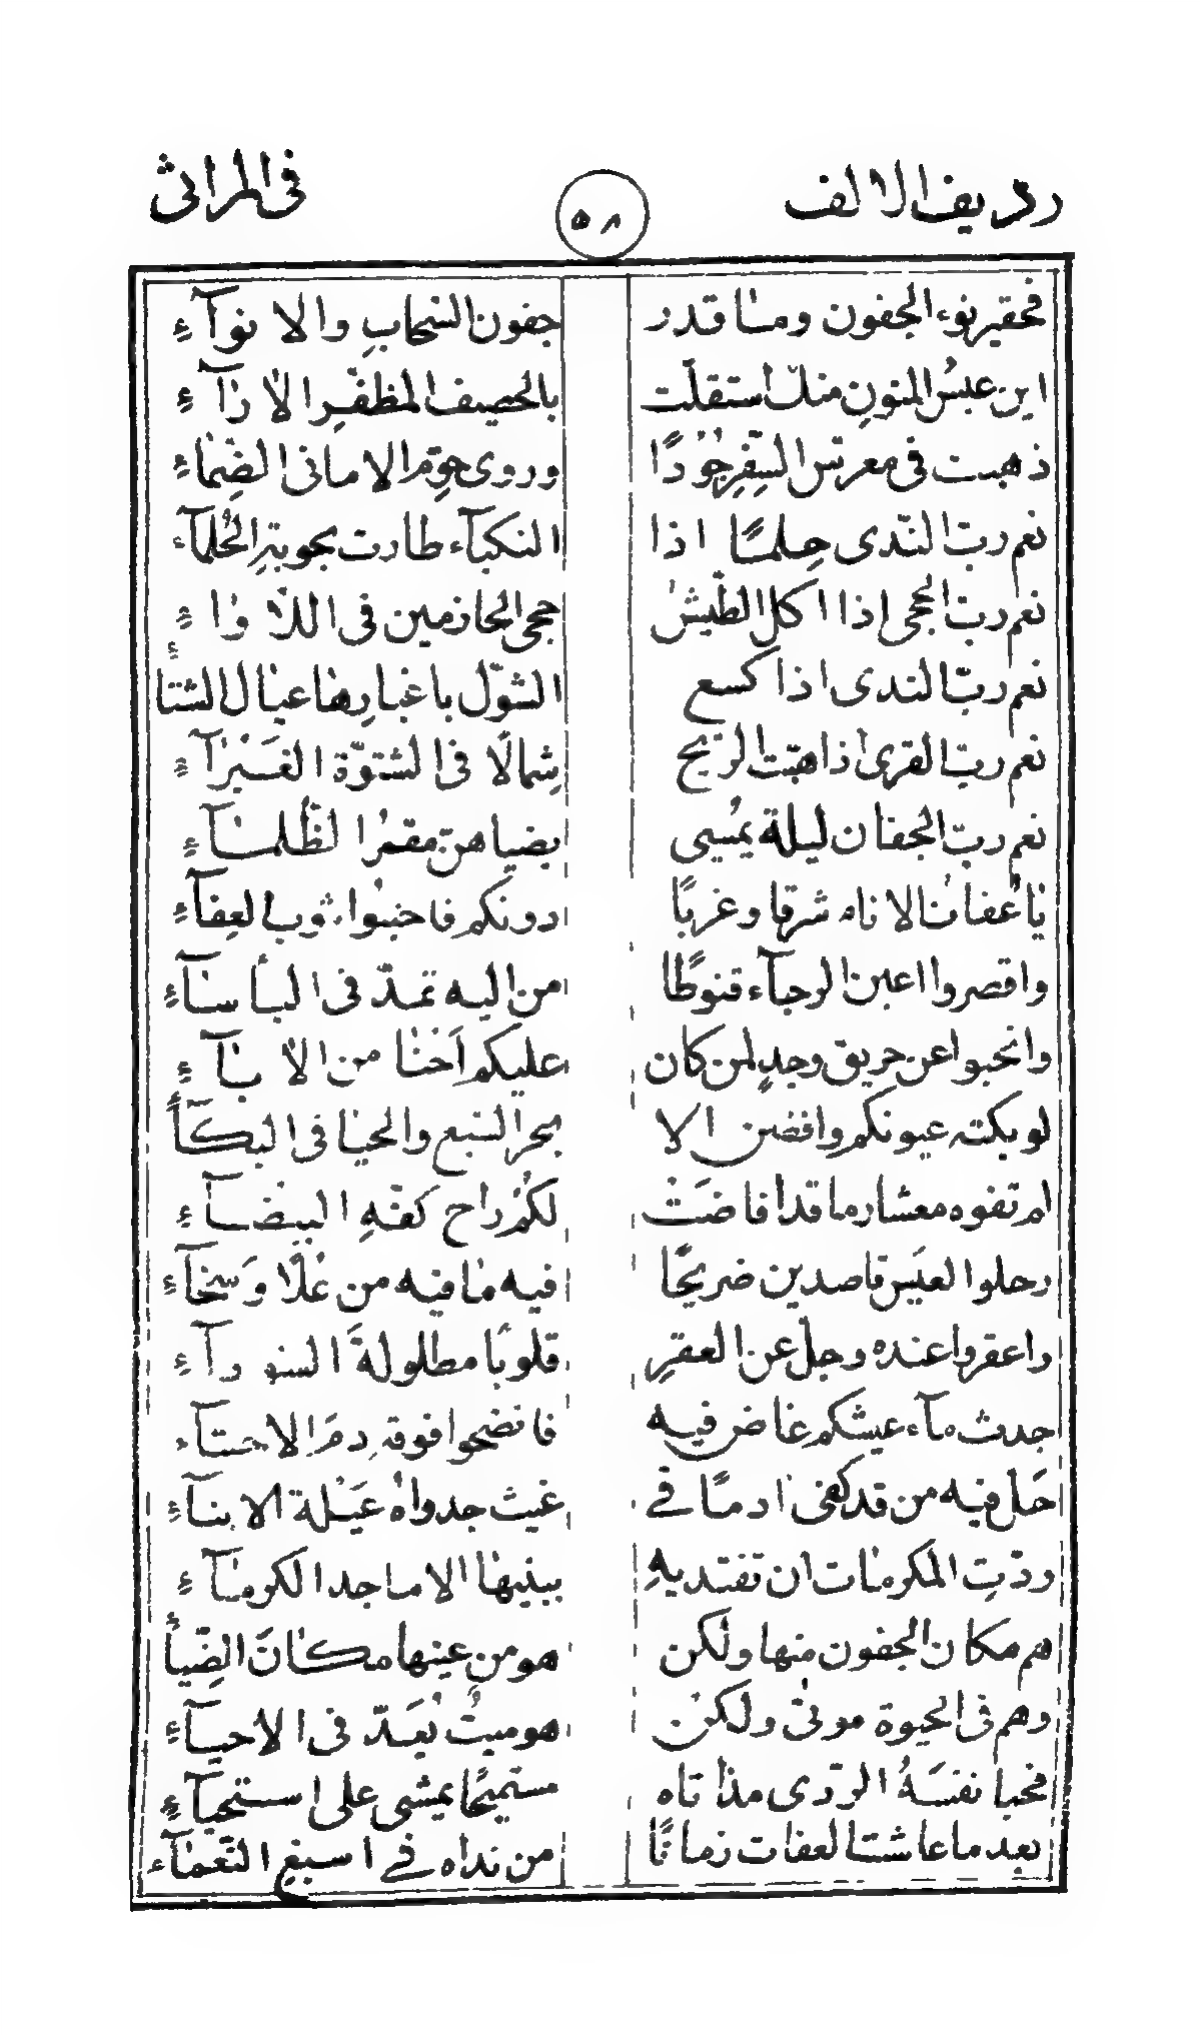 رديف الالف ٥٨ في المراثي
فحقير نوء الجفون وما قدر جفون السحاب والانوآءِ
اين عبس المنون منك استقلّت بالحصيف المظفّر الارآءِ
ذهبت في معرس السفر جودًا وروى حوّم الاماني الضماءِ
نعم ربّ النّدى حلمًا اذا النكبآء طارت بحوبة الحُلمآء
نعم ربّ الحجى اذا اكل الطيش حجى الحازمين في اللاّواءِ
نعم ربّ الندى اذا كسع الشوّل باغبارها عيال الشتاءِ
نعم ربّ القرى اذا هبّت الريح شمالًا في الشتوّة الغَبْرآءِ
نعم ربّ الجفان ليلة يمسي بضياهنّ مقمرُ الظُلمآءِ
يا عُفات الاناه شرقا وغربًا دونكم فاحبوا ثوب العفآءِ
واقصروا اعين الرجآء قنوطًا من اليه تمدّ في البأسآءِ
وانحبوا عن حريق وجدٍ لمن كان عليكم اَحْنا من الابآءِ
لو بكته عيونكم وافضن الا بحر السّبع والحيا في البكآءِ
لم تفوه معشار ما قد افاضَتْ لكُمُ راح كفّهِ البيضآءِ
رحلوا العيَس قاصدين ضريحًا فيه ما فيه من عُلًا وَسخآءِ
واعقروا عنده وجلّ عن العقرِ قلوبًا مطلولةَ السودآءِ
جدث مآء عيشكم غاض فيه فانضحوا فوقه دمَ الاحشآءِ
حَلّ فيه من قد كفى ادمًا في غيث جدواه عَيْلة الابنآءِ
ودّتِ المكرمات ان تفتديهِ ببنيها الاماجد الكرمآءِ
هم مكان الجفون منها ولكن هو من عينها مكانَ الضّياءِ
وهم في الحيوة موتى ولكن هو ميتٌ يُعَدّ في الاحيآءِ
فحبا نفسَهُ الردى مذ اتاه مستميحًا يمشي على استحيآءِ
بعد ما عاشت العفات زمانًا من نداه في اسبغ النّعمآءِ